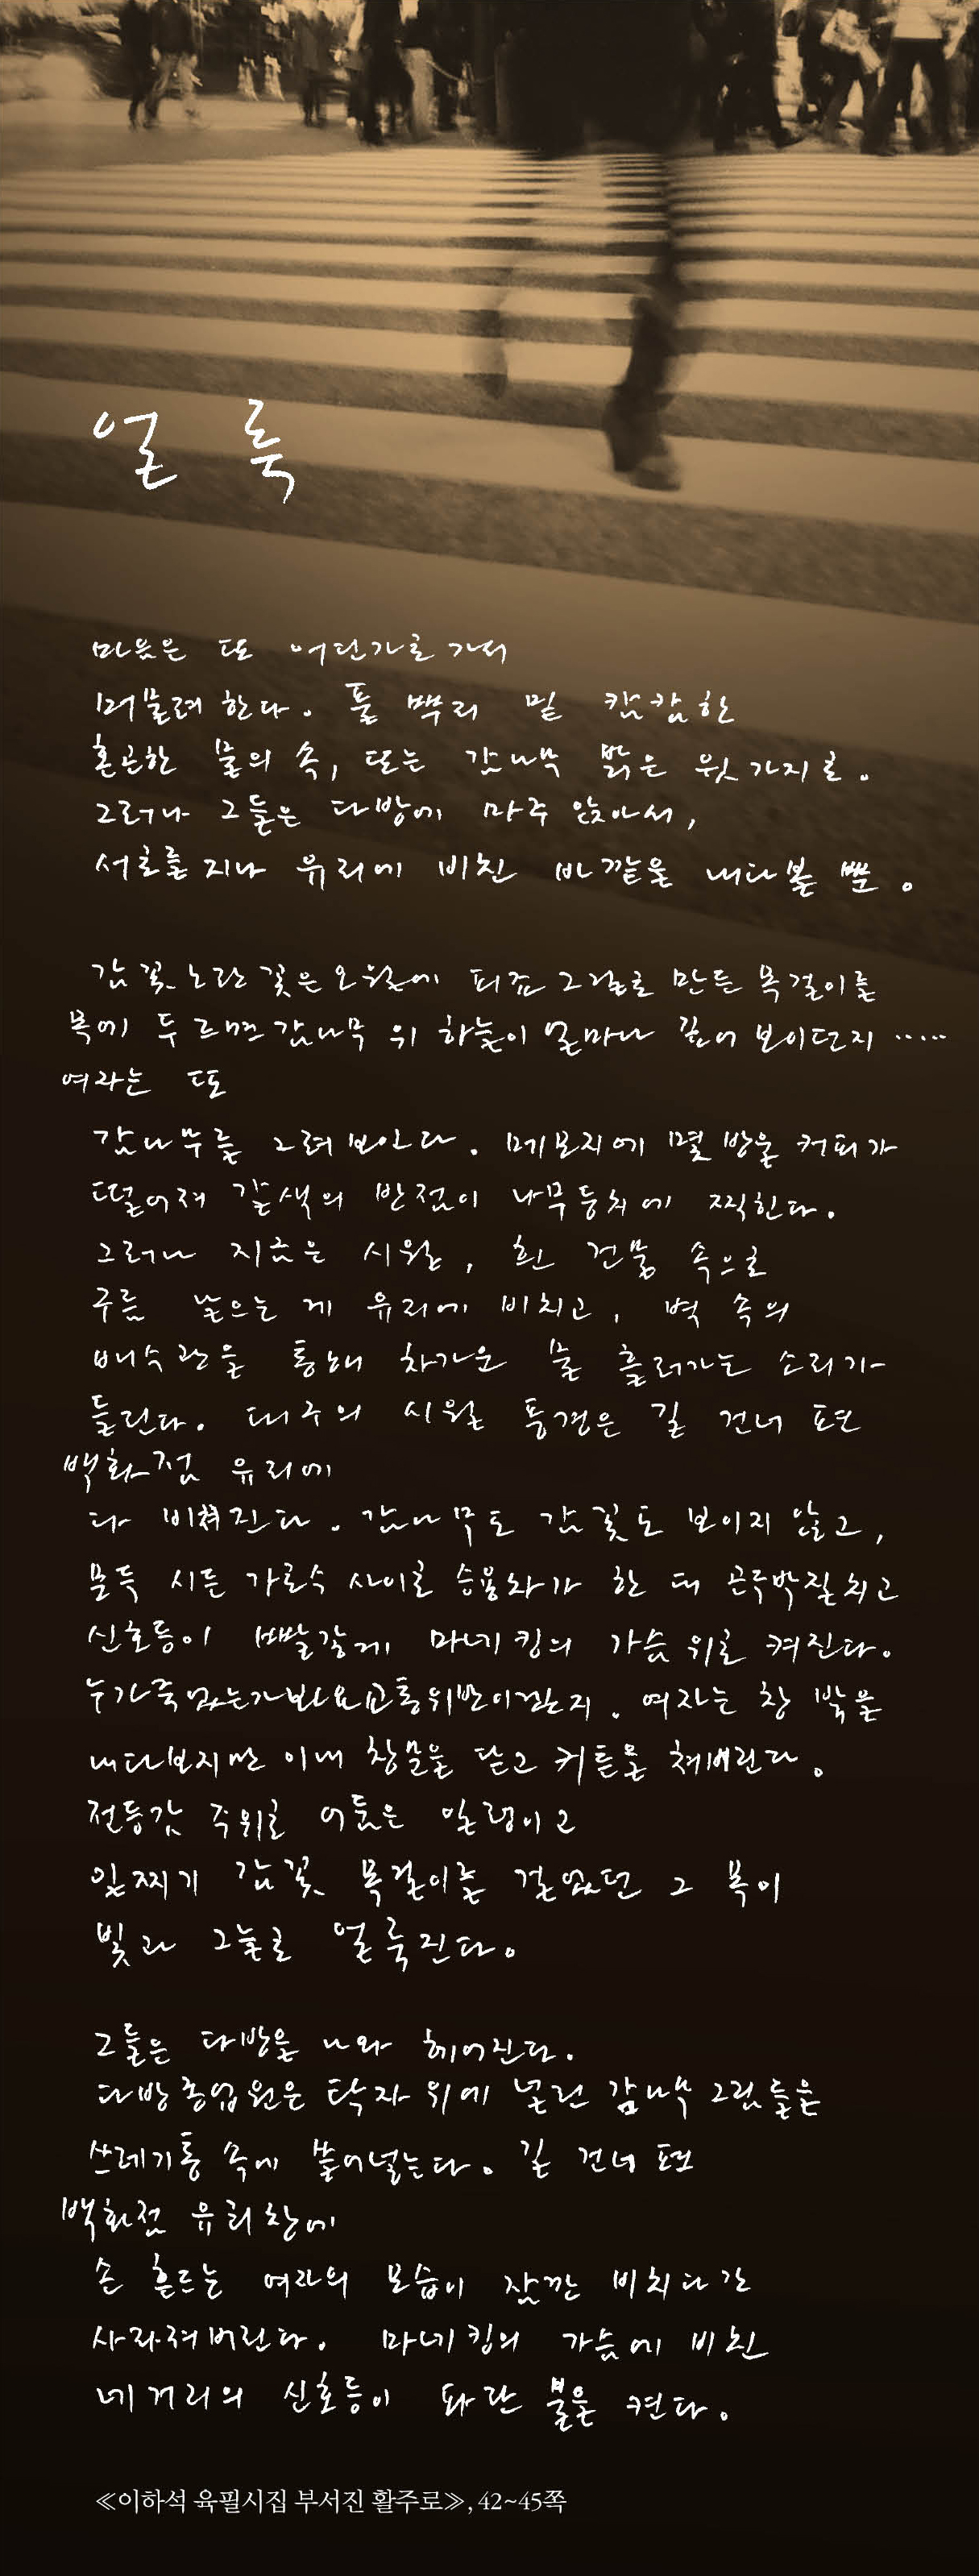 얼 룩
마음은 또 어딘가로 가서
머물려 한다. 풀 뿌리 밑 캄캄한
혼곤한 물의 속, 또는 감나무 밝은 윗가지로.
그러나 그들은 다방에 마주 앉아서,
서로를 지나 유리에 비친 바깥을 내다볼 뿐.
감꽃 노란 꽃은 오월에 피죠 그걸로 만든 목걸이를
목에 두르면 감나무 위 하늘이 얼마나 깊어 보이던지 ·····
여자는 또
감나무를 그려 보인다. 메모지에 몇 방울 커피가
떨어져 갈색의 반점이 나무등치에 찍힌다.
그러나 지금은 시월, 흰 건물 속으로
구름 낳으는 게 유리에 비치고, 벽 속의
배수관을 통해 차가운 물 흘러가는 소리가
들린다. 대구의 시월 풍경은 길 건너 편
백화점 유리에
다 비쳐진다. 감나무도 감꽃도 보이지 않고,
문득 시든 가로수 사이로 승용차가 한 대 곤두박질치고
신호등이 빨갛게 마네킹의 가슴 위로 켜진다.
누가죽었는가봐요교통위반이겠는지. 여자는 창 밖을
내다보지만 이내 창문을 닫고 커튼을 쳐버린다.
전등갓 주위로 어둠은 일렁이고
일찌기 감꽃 목걸이를 걸었던 그 목이
빛과 그늘로 얼룩진다.
그들은 다방을 나와 헤어진다.
다방종업원은 탁자 위에 널린 감나무 그림들을
쓰레기통 속에 쓸어넣는다. 길 건너 편
백화점 유리창에
손 흔드는 여자의 모습이 잠깐 비치다간
사라져버린다. 마네킹의 가슴에 비친
네거리의 신호등이 파란 불을 켠다.
≪이하석 육필시집 부서진 활주로≫, 42~45쪽